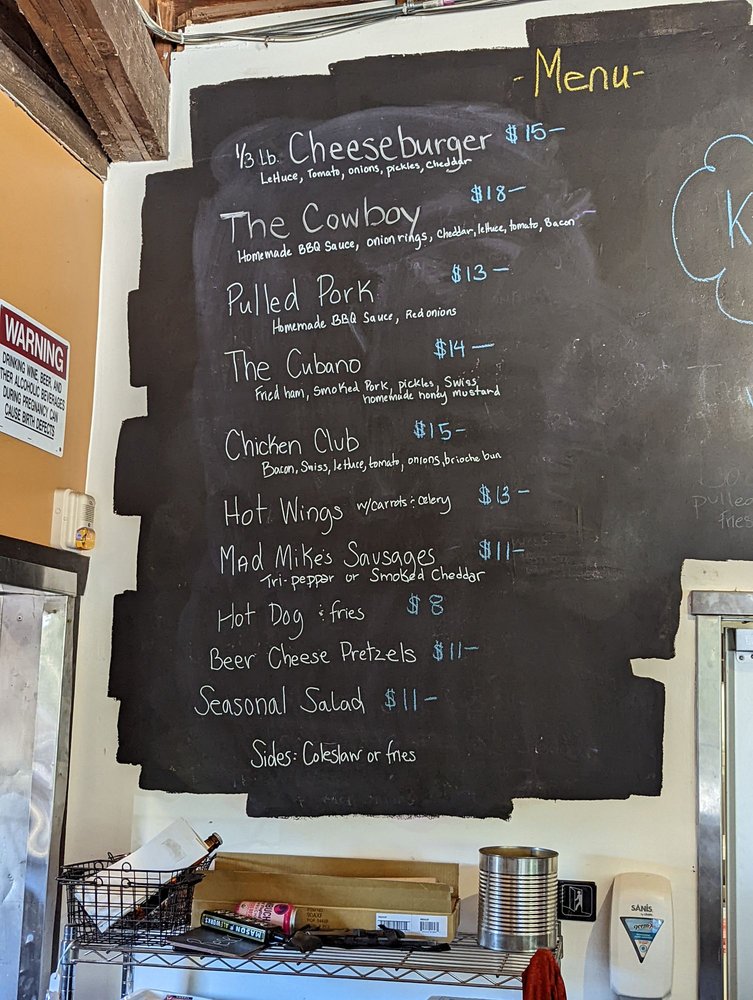 -Menu-
1/3 Lb. Cheeseburger $15-
Lettuce, Tomato, onions, pickles, Cheddar
$18-
The Cowboy
Homemade BBQ Sauce, onion rings, Cheddar, lettuce, tomato, Bacon
$13-
Pulled Pork
Homemade BBQ Sauce, Red onions
$14-
The Cubano
Fried ham, Smoked Pork, pickles, Swiss,
homemade honey mustard
$15-
Chicken Club
Bacon, Swiss, lettuce, tomato, onions, brioche bun
Hot Wings w/carrots & Celery $13-
Mad Mike's Sausages $11-
Tri-pepper or Smoked Cheddar
Hot Dog & fries $8
Beer Cheese Pretzels $11-
Seasonal Salad $11-
Sides: Coleslaw or fries
K
pulled
fries
WARNING
DRINKING WINE, BEER, AND
THER ALCOHOLIC BEVERAGES
DURING PREGNANCY CAN
CAUSE BIRTH DEFECTS
MASON
SANIS